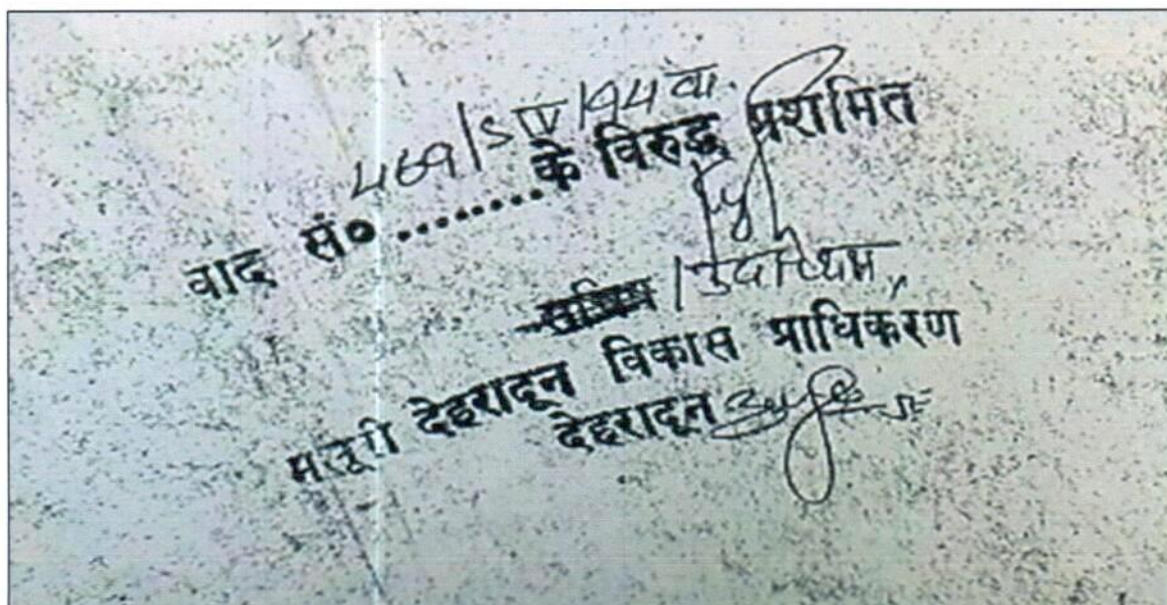 वाद सं० ........ 469/S IV/94 वा. के विरुद्ध प्रशमित
सचिव /
मसूरी देहरादून विकास प्राधिकरण
देहरादून